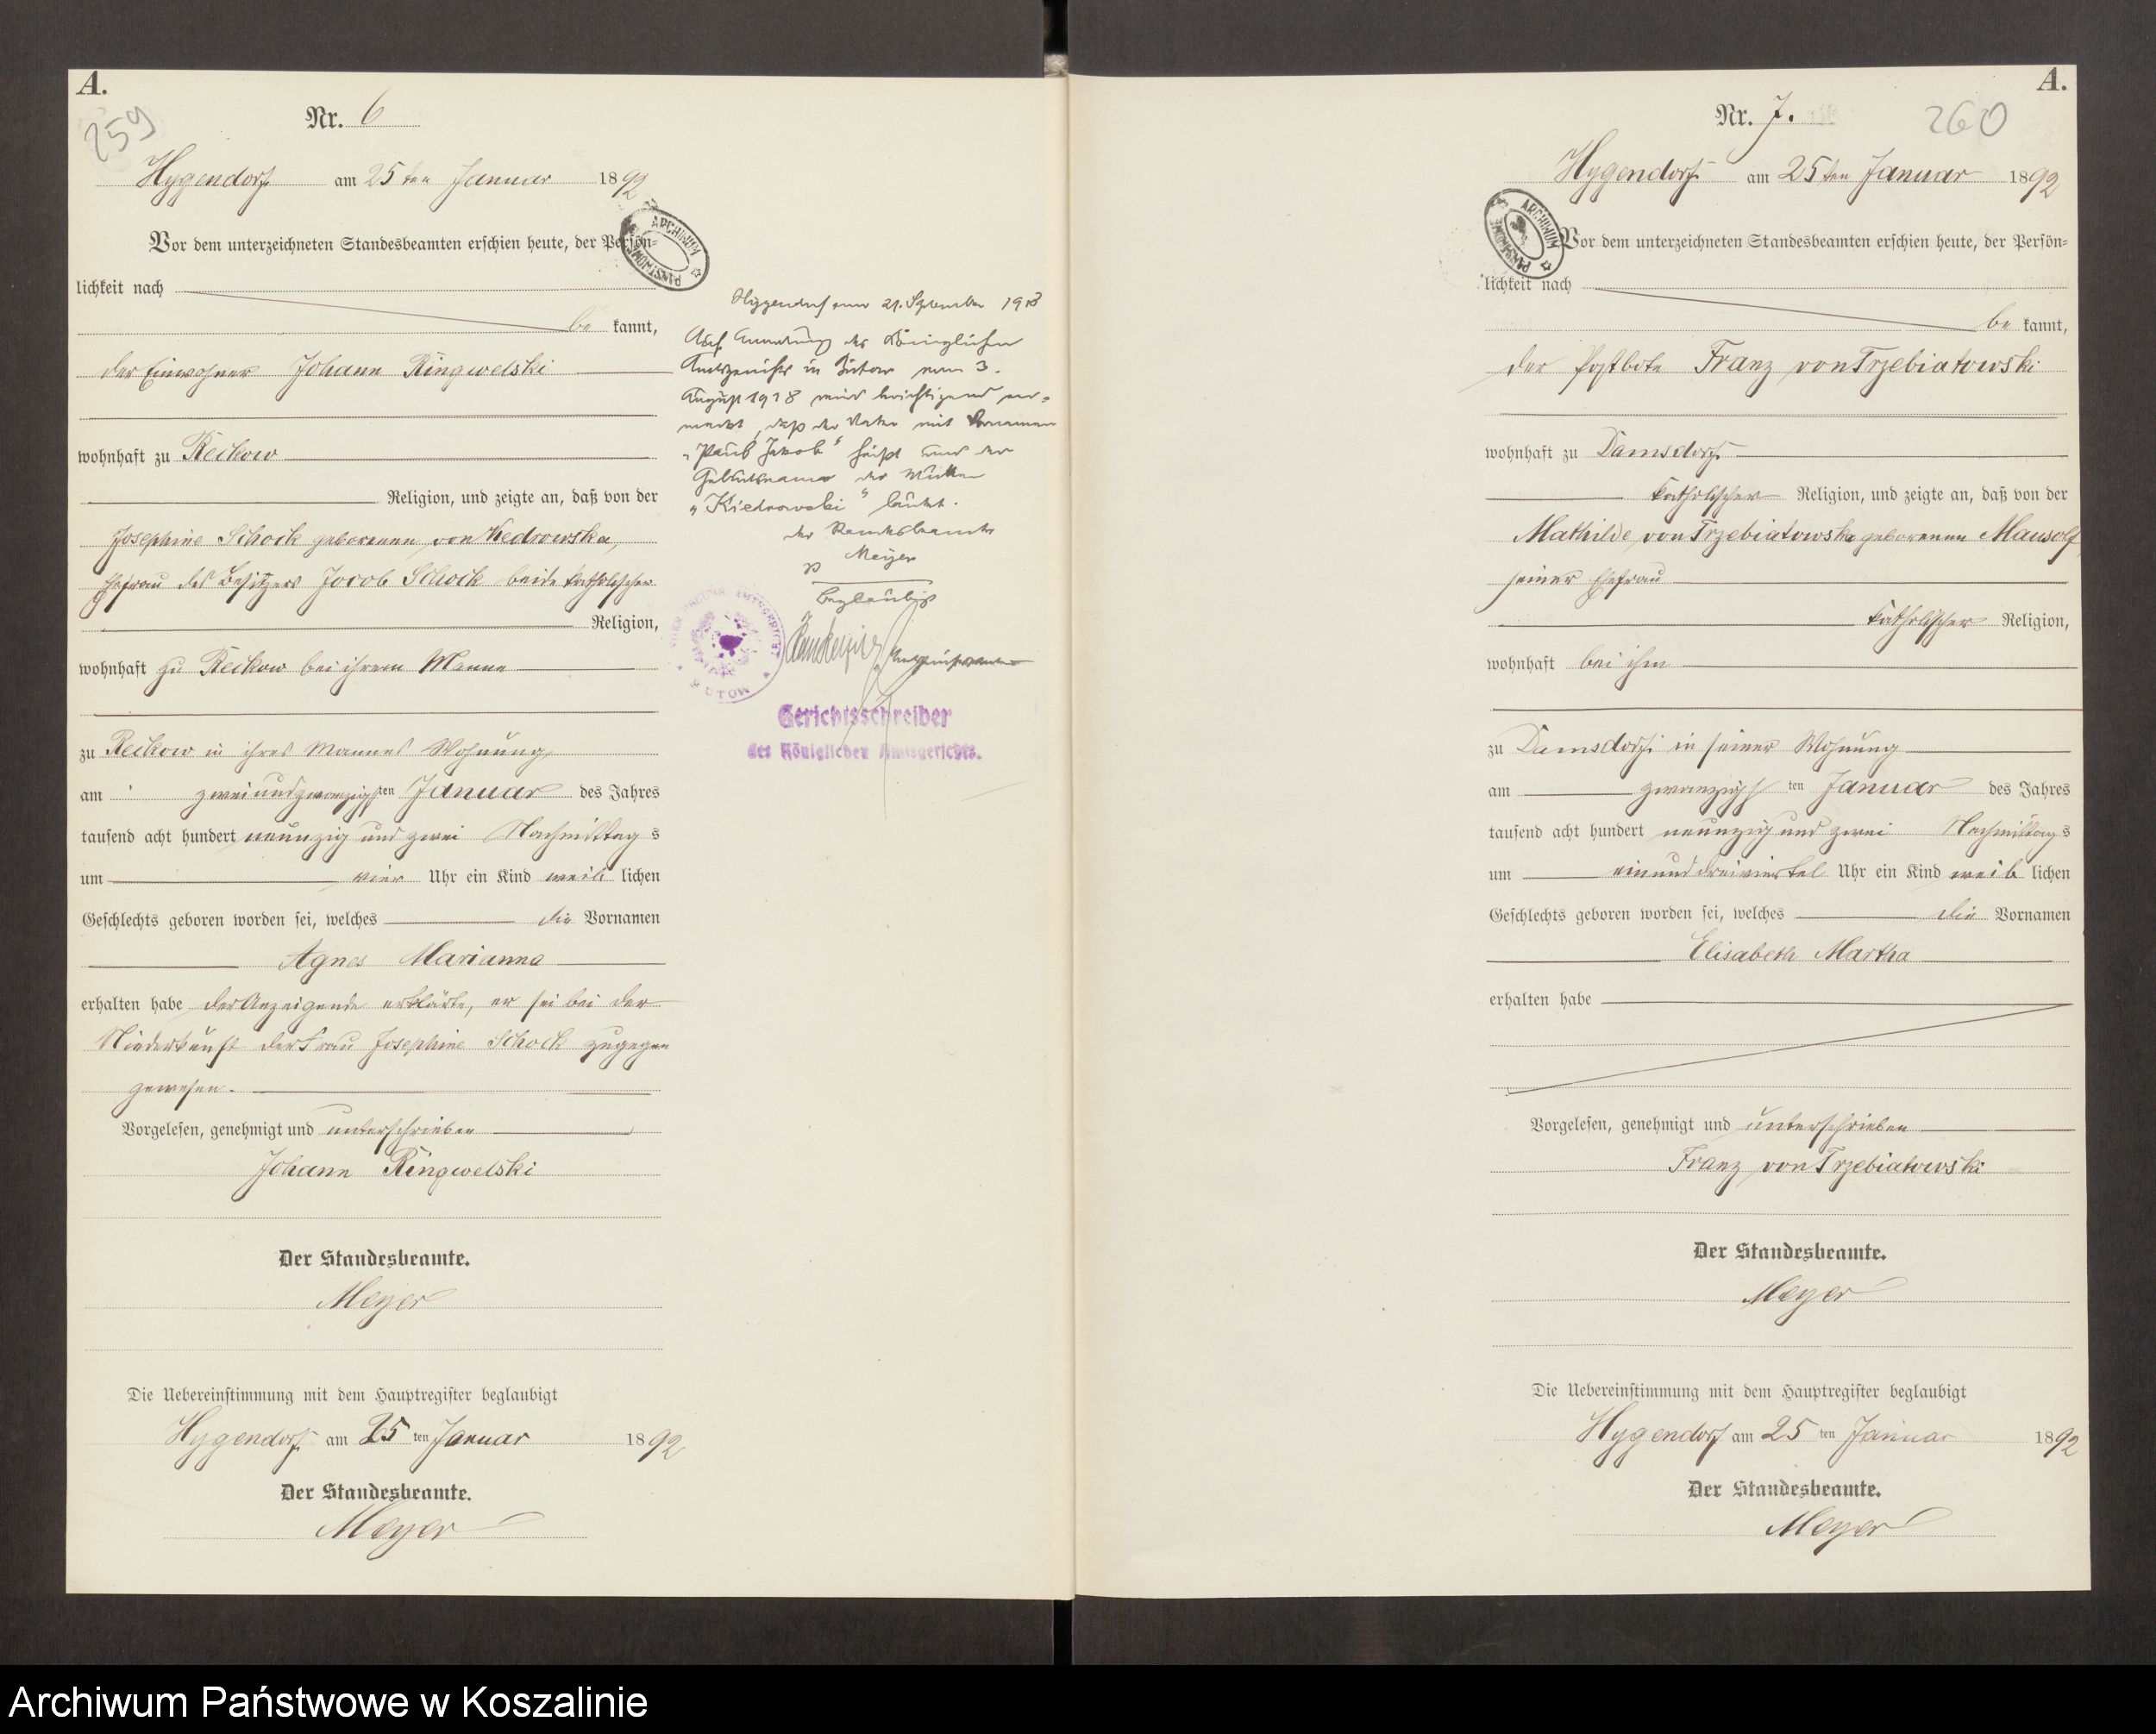 A.
259
Nr. 6
Hygendorf am 25ten Januar 1892
Vor dem unterzeichneten Standesbeamten erschien heute, der Persön-
lichkeit nach
be kannt,
der Einwohner Johann Ringwelski
wohnhaft zu Reckow
Religion, und zeigte an, daß von der
Josephine Schock geborenen von Kedrowska,
Ehefrau des Besitzers Jacob Schock beide katholischer
Religion,
wohnhaft zu Reckow bei ihrem Manne
zu Reckow in ihres Mannes Wohnung,
am zweiundzwanzigsten Januar des Jahres
tausend acht hundert neunzig und zwei Nachmittags
um vier Uhr ein Kind weiblichen
Geschlechts geboren worden sei, welches die Vornamen
Agnes Marianna
erhalten habe der Anzeigende erklärte, er sei bei der
Niederkunft der Frau Josephine Schock zugegen
gewesen.
Vorgelesen, genehmigt und unterschrieben
Johann Ringwelski
Der Standesbeamte.
Meyer
Die Uebereinstimmung mit dem Hauptregister beglaubigt
Hygendorf am 25ten Januar 1892
Der Standesbeamte.
Meyer
ARCHIWUM PAŃSTWOWE
Hygendorf am 21. September 1918
Auf Anordnung des Königlichen
Amtsgerichts in Bütow vom 3.
August 1918 wird berichtigend ver-
merkt, daß der Vater mit Vornamen
"Paul Jakob" heißt und der
Geburtsname der Mutter
"Kiedrowski" lautet.
der Standesbeamte
Meyer
Beglaubigt
AMTSGERICHT
BÜTOW
Gerichtsschreiber
des Königlichen Amtsgerichts.
A.
Nr. 7.
260
Hygendorf am 25ten Januar 1892
ARCHIWUM PAŃSTWOWE
Vor dem unterzeichneten Standesbeamten erschien heute, der Persön-
lichkeit nach
be kannt,
der Postbote Franz von Trzebiatowski
wohnhaft zu Damsdorf
katholischer Religion, und zeigte an, daß von der
Mathilde von Trzebiatowska geborenen Mausolf,
seiner Ehefrau
katholischer Religion,
wohnhaft bei ihm
zu Damsdorf in seiner Wohnung
am zwanzigsten Januar des Jahres
tausend acht hundert neunzig und zwei Nachmittags
um ein und dreiviertel Uhr ein Kind weiblichen
Geschlechts geboren worden sei, welches die Vornamen
Elisabeth Martha
erhalten habe
Vorgelesen, genehmigt und unterschrieben
Franz von Trzebiatowski
Der Standesbeamte.
Meyer
Die Uebereinstimmung mit dem Hauptregister beglaubigt
Hygendorf am 25ten Januar 1892
Der Standesbeamte.
Meyer
Archiwum Państwowe w Koszalinie